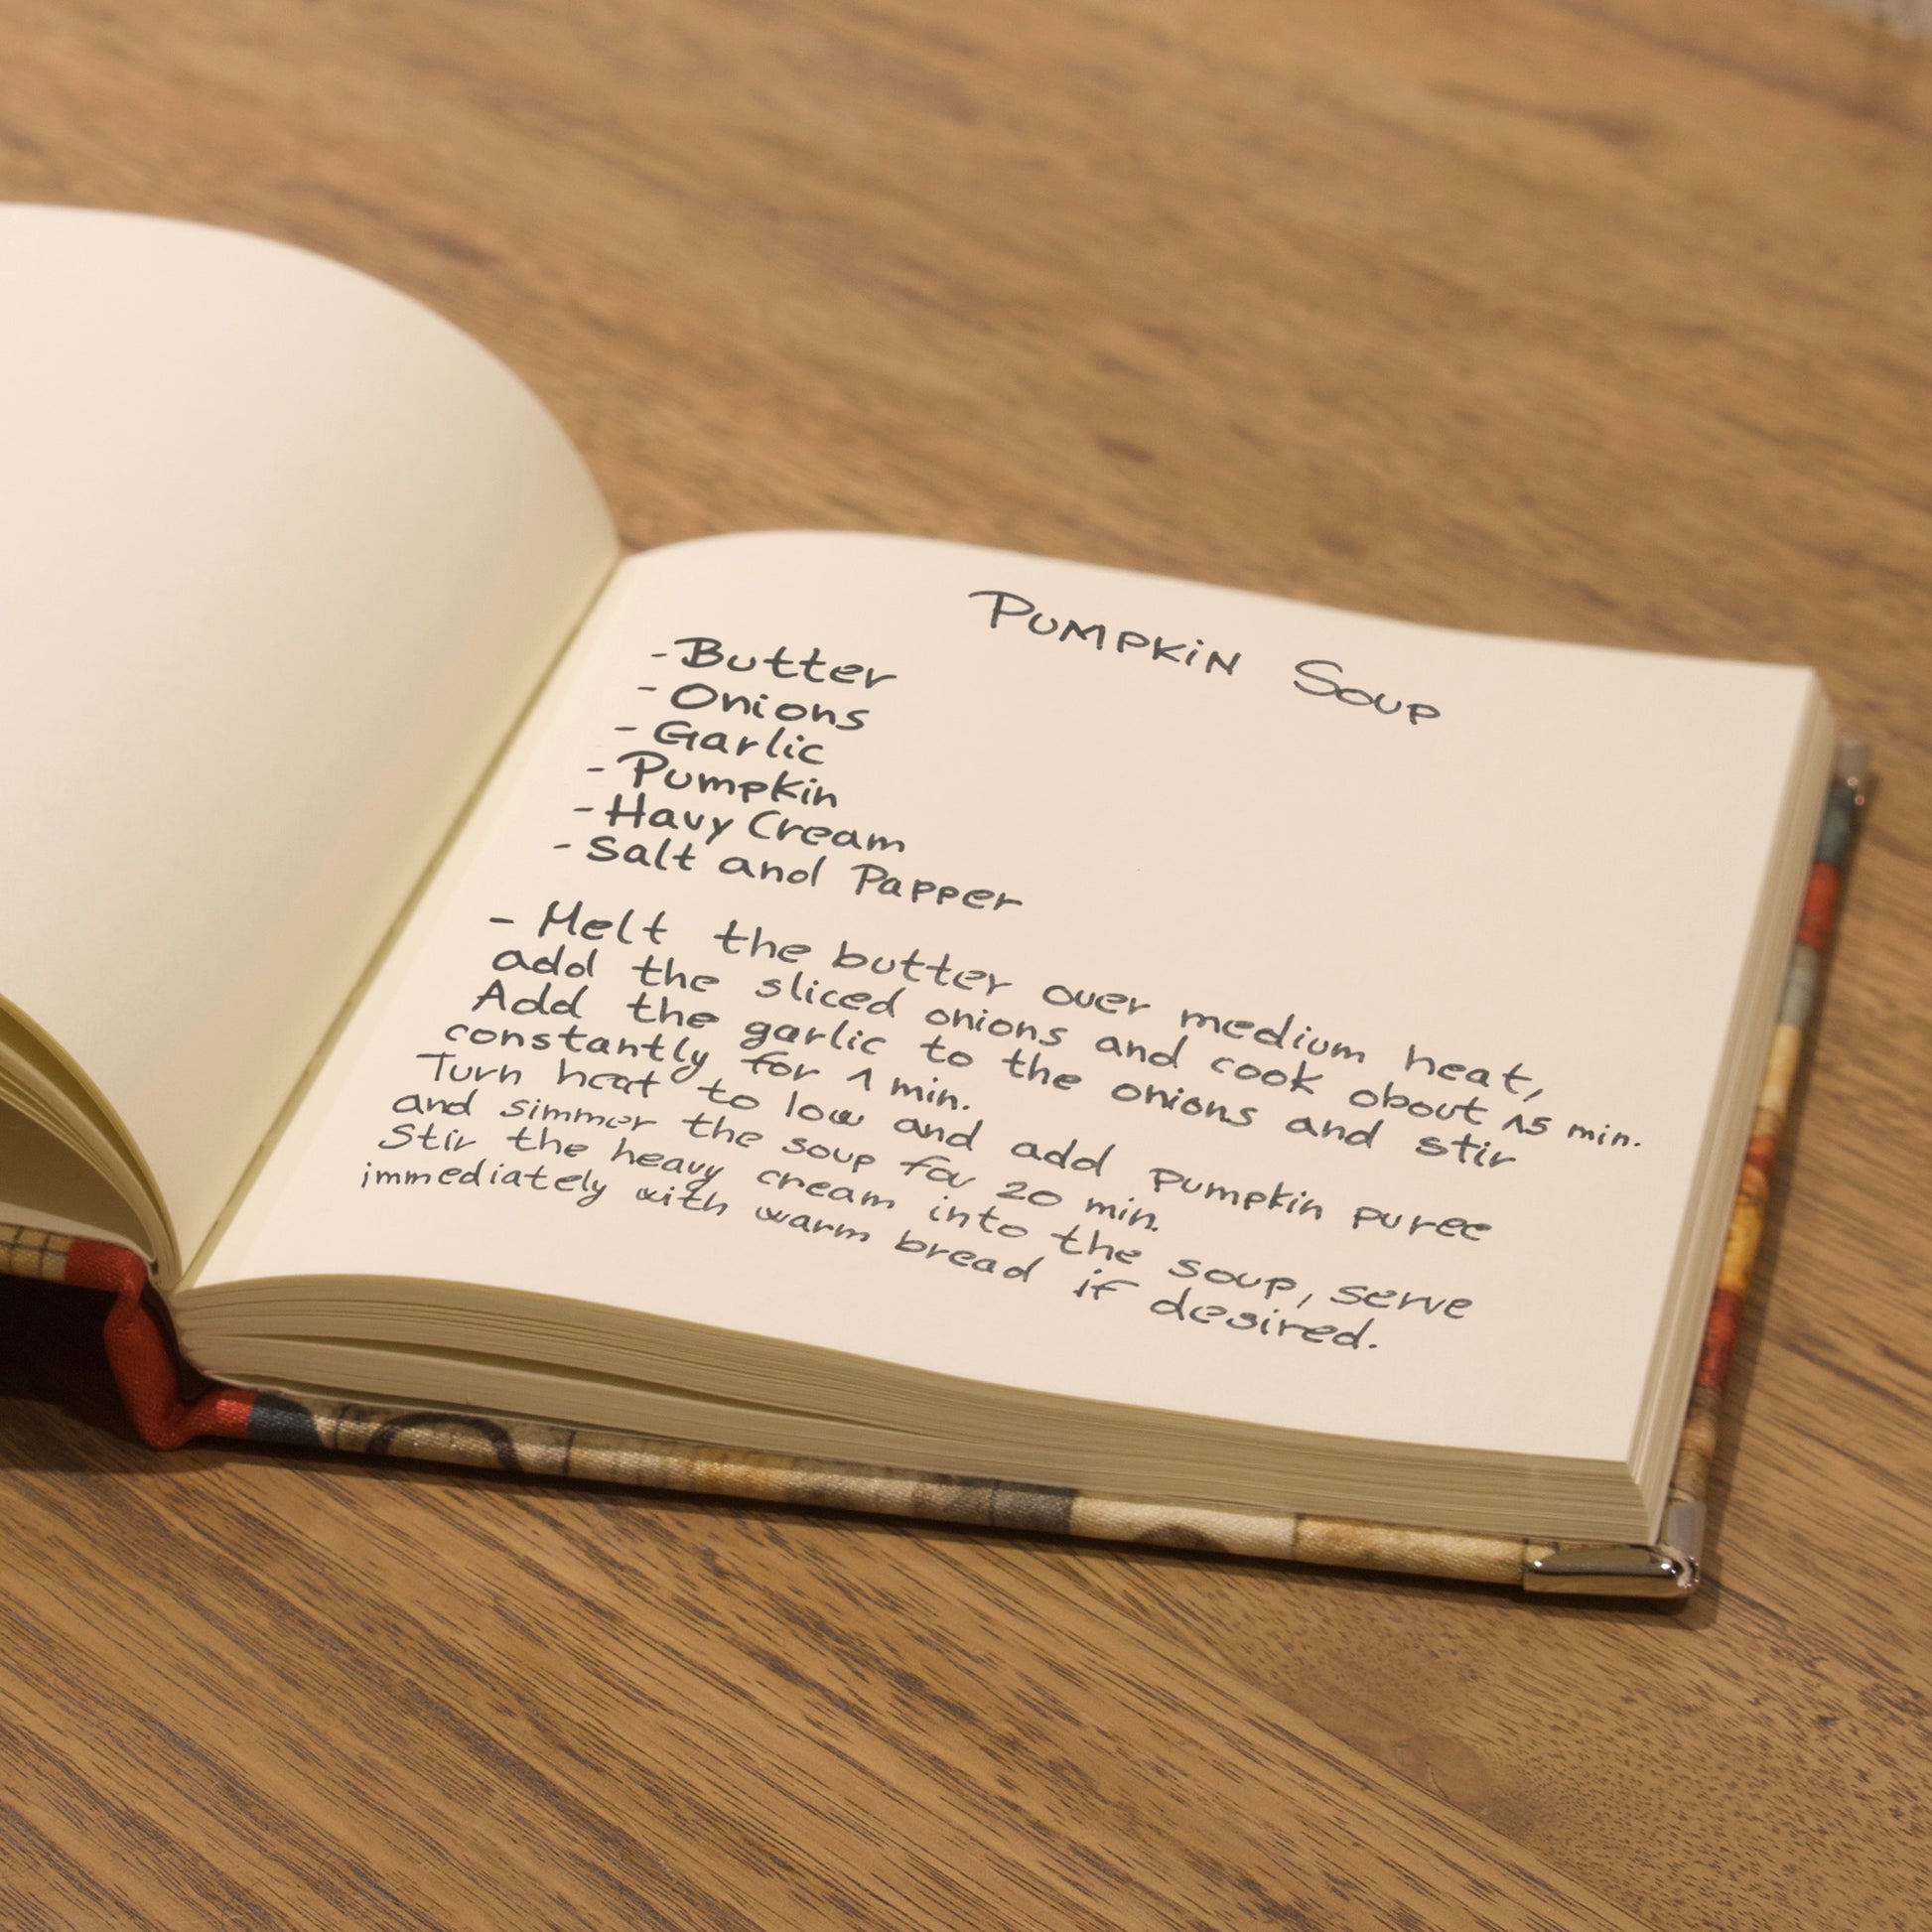 Pumpkin Soup
- Butter
- Onions
- Garlic
- Pumpkin
- Havy Cream
- Salt and Papper
- Melt the butter over medium heat,
add the sliced onions and cook about 15 min.
Add the garlic to the onions and stir
constantly for 1 min.
Turn heat to low and add pumpkin puree
and simmer the soup for 20 min.
Stir the heavy cream into the soup, serve
immediately with warm bread if desired.